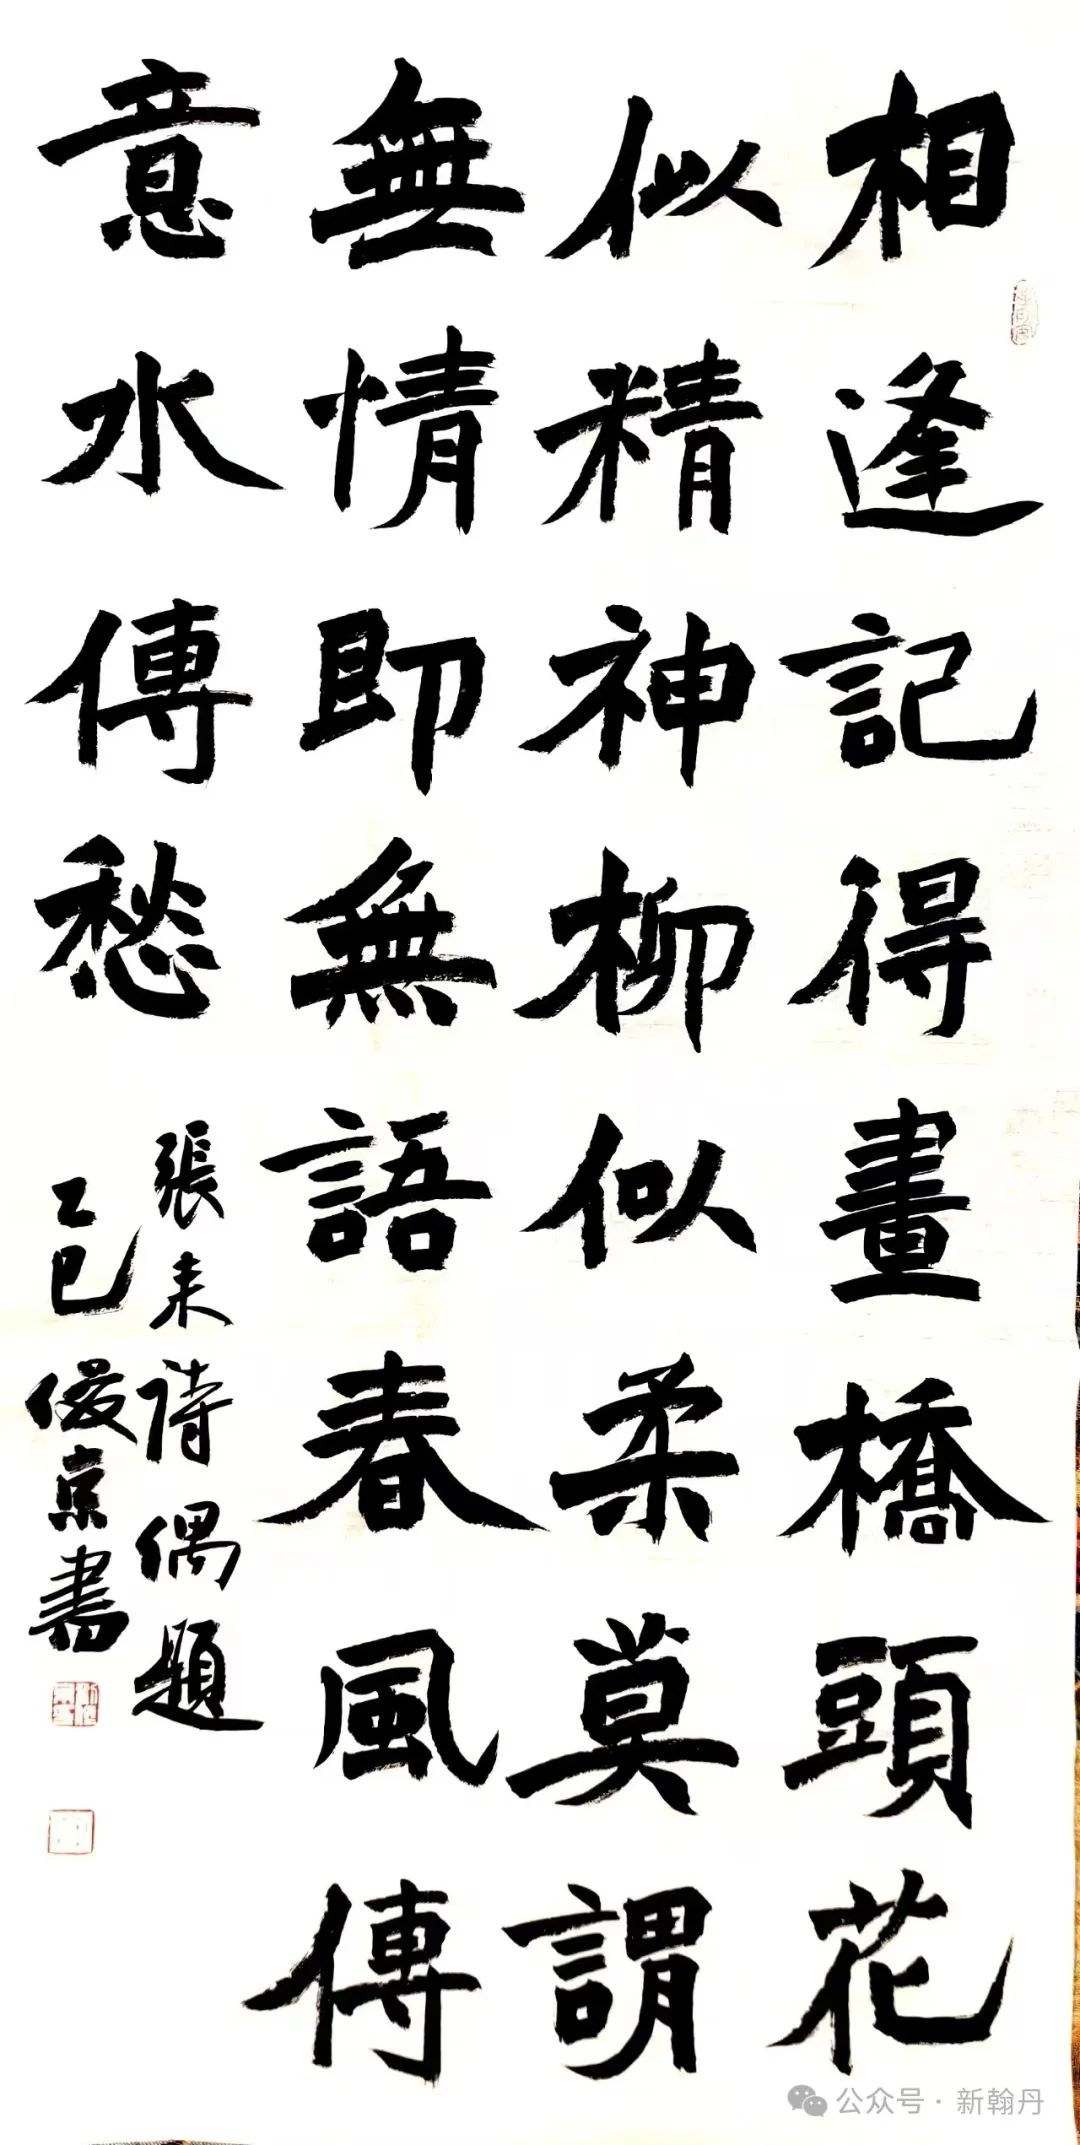 相逢記得畫橋頭花
似精神柳似柔莫謂
無情即無語春風傳
意水傳愁
張耒詩偶題
乙巳俊京書
公众号·新翰丹